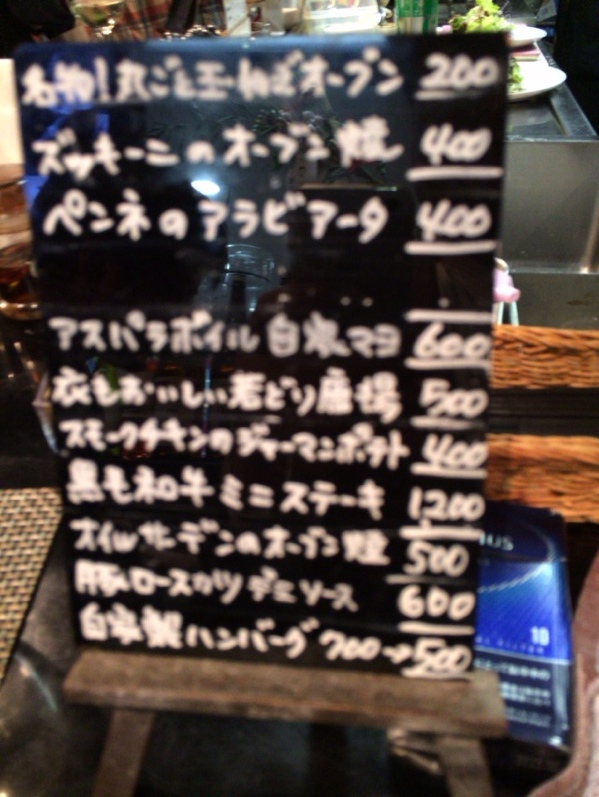 名物!丸ごと玉ねぎオーブン 200
ズッキーニのオーブン焼 400
ペンネのアラビアータ 400
アスパラボイル 自家マヨ 600
衣もおいしい若どり唐揚 500
スモークチキンのジャーマンポテト 400
黒毛和牛ミニステーキ 1200
オイルサーデンのオーブン焼 500
豚ロースカツ デミソース 600
自家製ハンバーグ 700→500
10